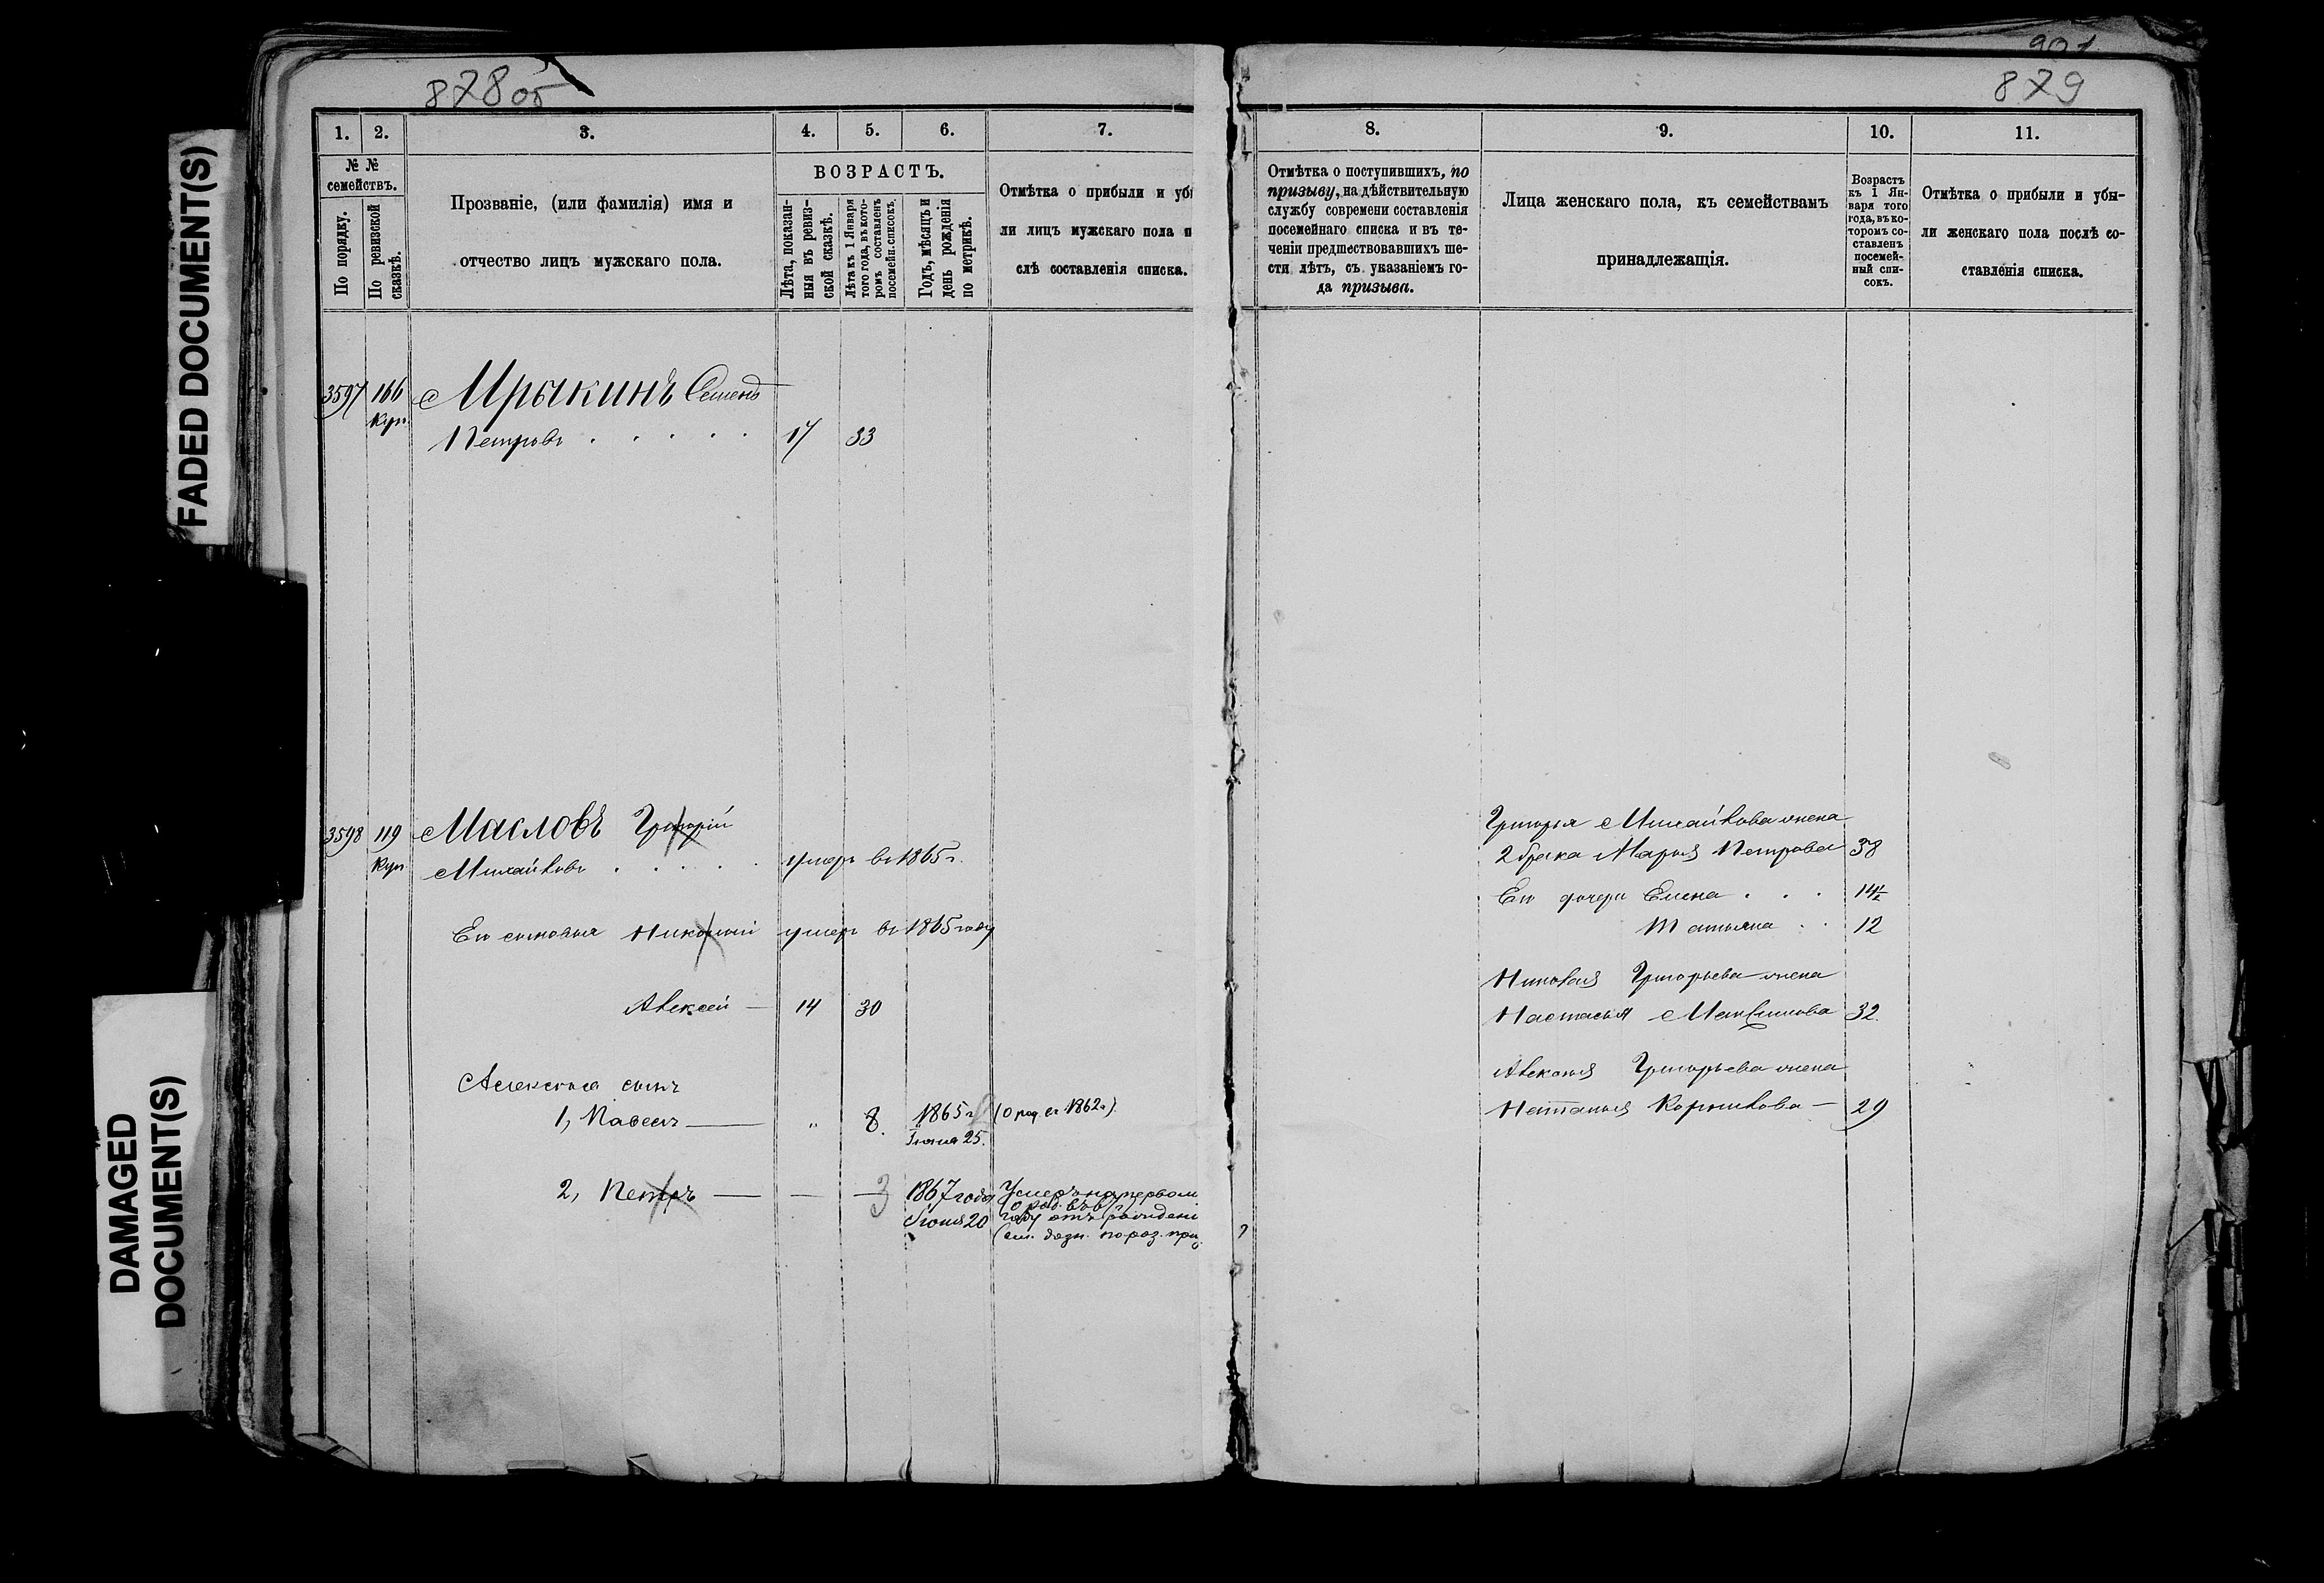 901
878 об
879
FADED DOCUMENT(S)
DAMAGED
DOCUMENT(S)
1. 2. 3. 4. 5. 6. 7.
№ №
семействъ.
По порядку.
По ревизской
сказкѣ.
Прозваніе, (или фамилія) имя и
отчество лицъ мужскаго пола.
ВОЗРАСТЪ.
Лѣта, показан-
ныя въ ревиз-
ской сказкѣ.
Лѣта къ 1 Января
того года, въ кото-
ромъ составленъ
посемейн. списокъ.
Годъ, мѣсяцъ и
день рожденія
по метрикѣ.
Отмѣтка о прибыли и уб
ли лицъ мужскаго пола п
слѣ составленія списка.
3597 166 Мрыкинъ Семенъ
Куп.
Петровъ . . . . . 17 33
3598 119 Масловъ Григорій
Куп
Михайловъ . . . . умеръ въ 1865 г.
Его сыновья Николай умеръ въ 1865 году
Алексѣй — 14 30
Алексѣя сынъ
1, Павелъ — " 8. 1865 г. (О род. въ 1862 г.)
Іюня 25.
2, Петръ — — 3 1867 года Умеръ на первом
Іюня 20 году отъ рожденi
8. 9. 10. 11.
Отмѣтка о поступившихъ, по
призыву, на дѣйствительную
службу современи составленія
посемейнаго списка и въ те-
ченіи предшествовавшихъ ше-
сти лѣтъ, съ указаніемъ го-
да призыва.
Лица женскаго пола, къ семействамъ
принадлежащія.
Возрастъ
къ 1 Ян-
варя того
года, въ ко-
торомъ со-
ставленъ
посемей-
ный спи-
сокъ.
Отмѣтка о прибыли и убы-
ли женскаго пола послѣ со-
ставленія списка.
Григорья Михайлова жена
2 брака Марья Петрова 38
Его дочери Елена . . . 14½
Татьяна . . 12
Николая Григорьева жена
Настасья 32.
Алексѣя Григорьева жена
Наталья Корнилова — 29